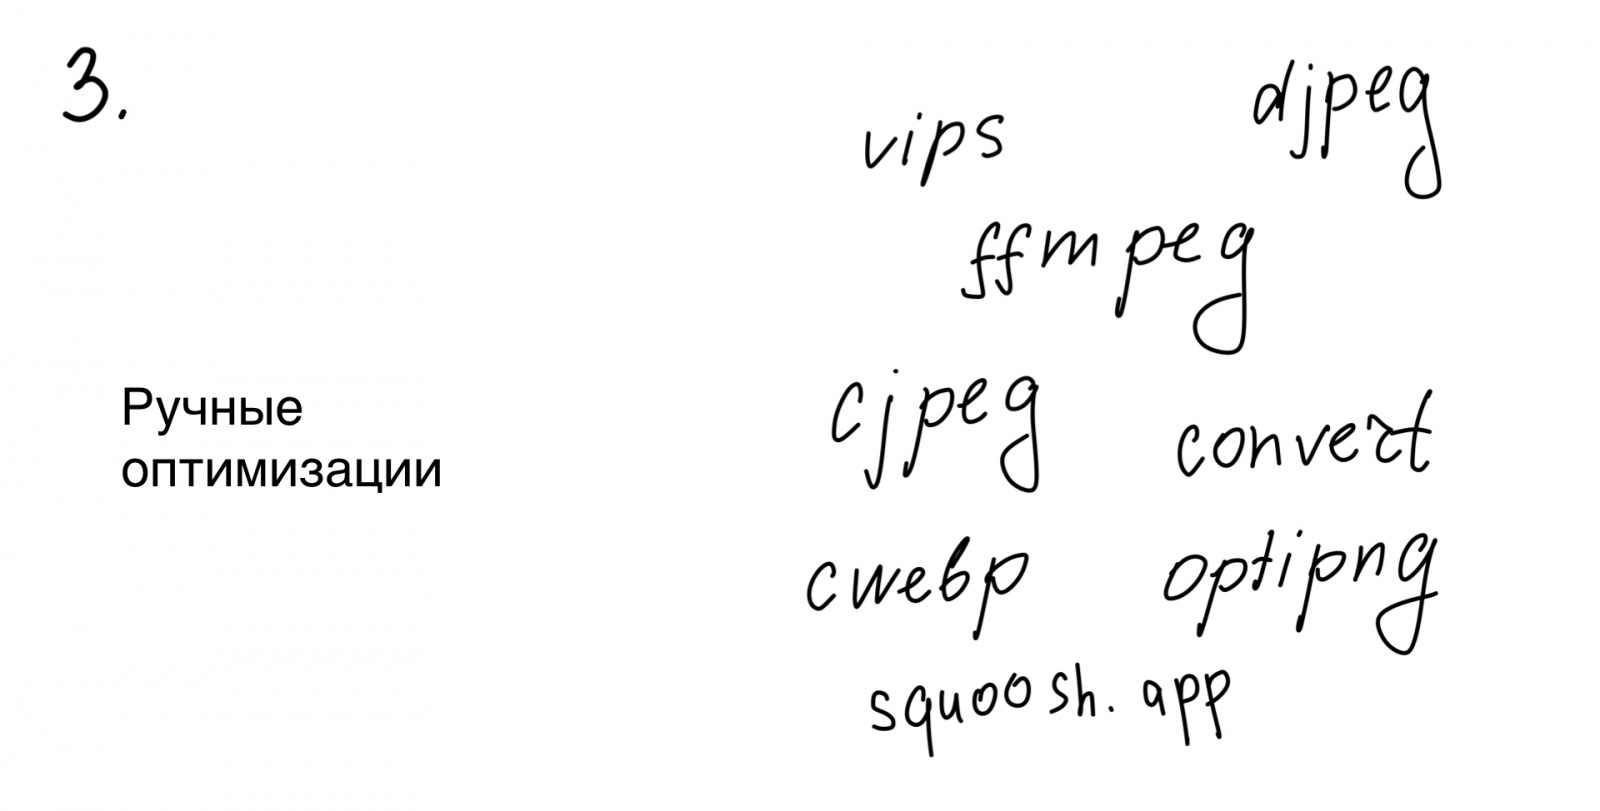 3.
vips djpeg
ffmpeg
Ручные
оптимизации
cjpeg convert
cwebp optipng
squoosh.app